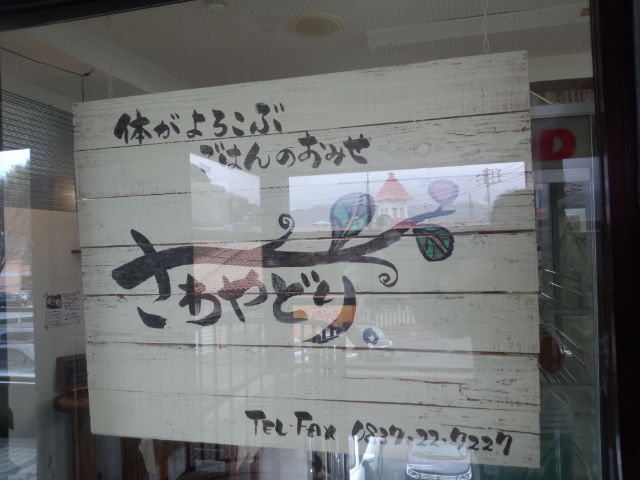 体がよろこぶ
ごはんのおみせ
さわやどり
TEL·FAX 0837-22-7227